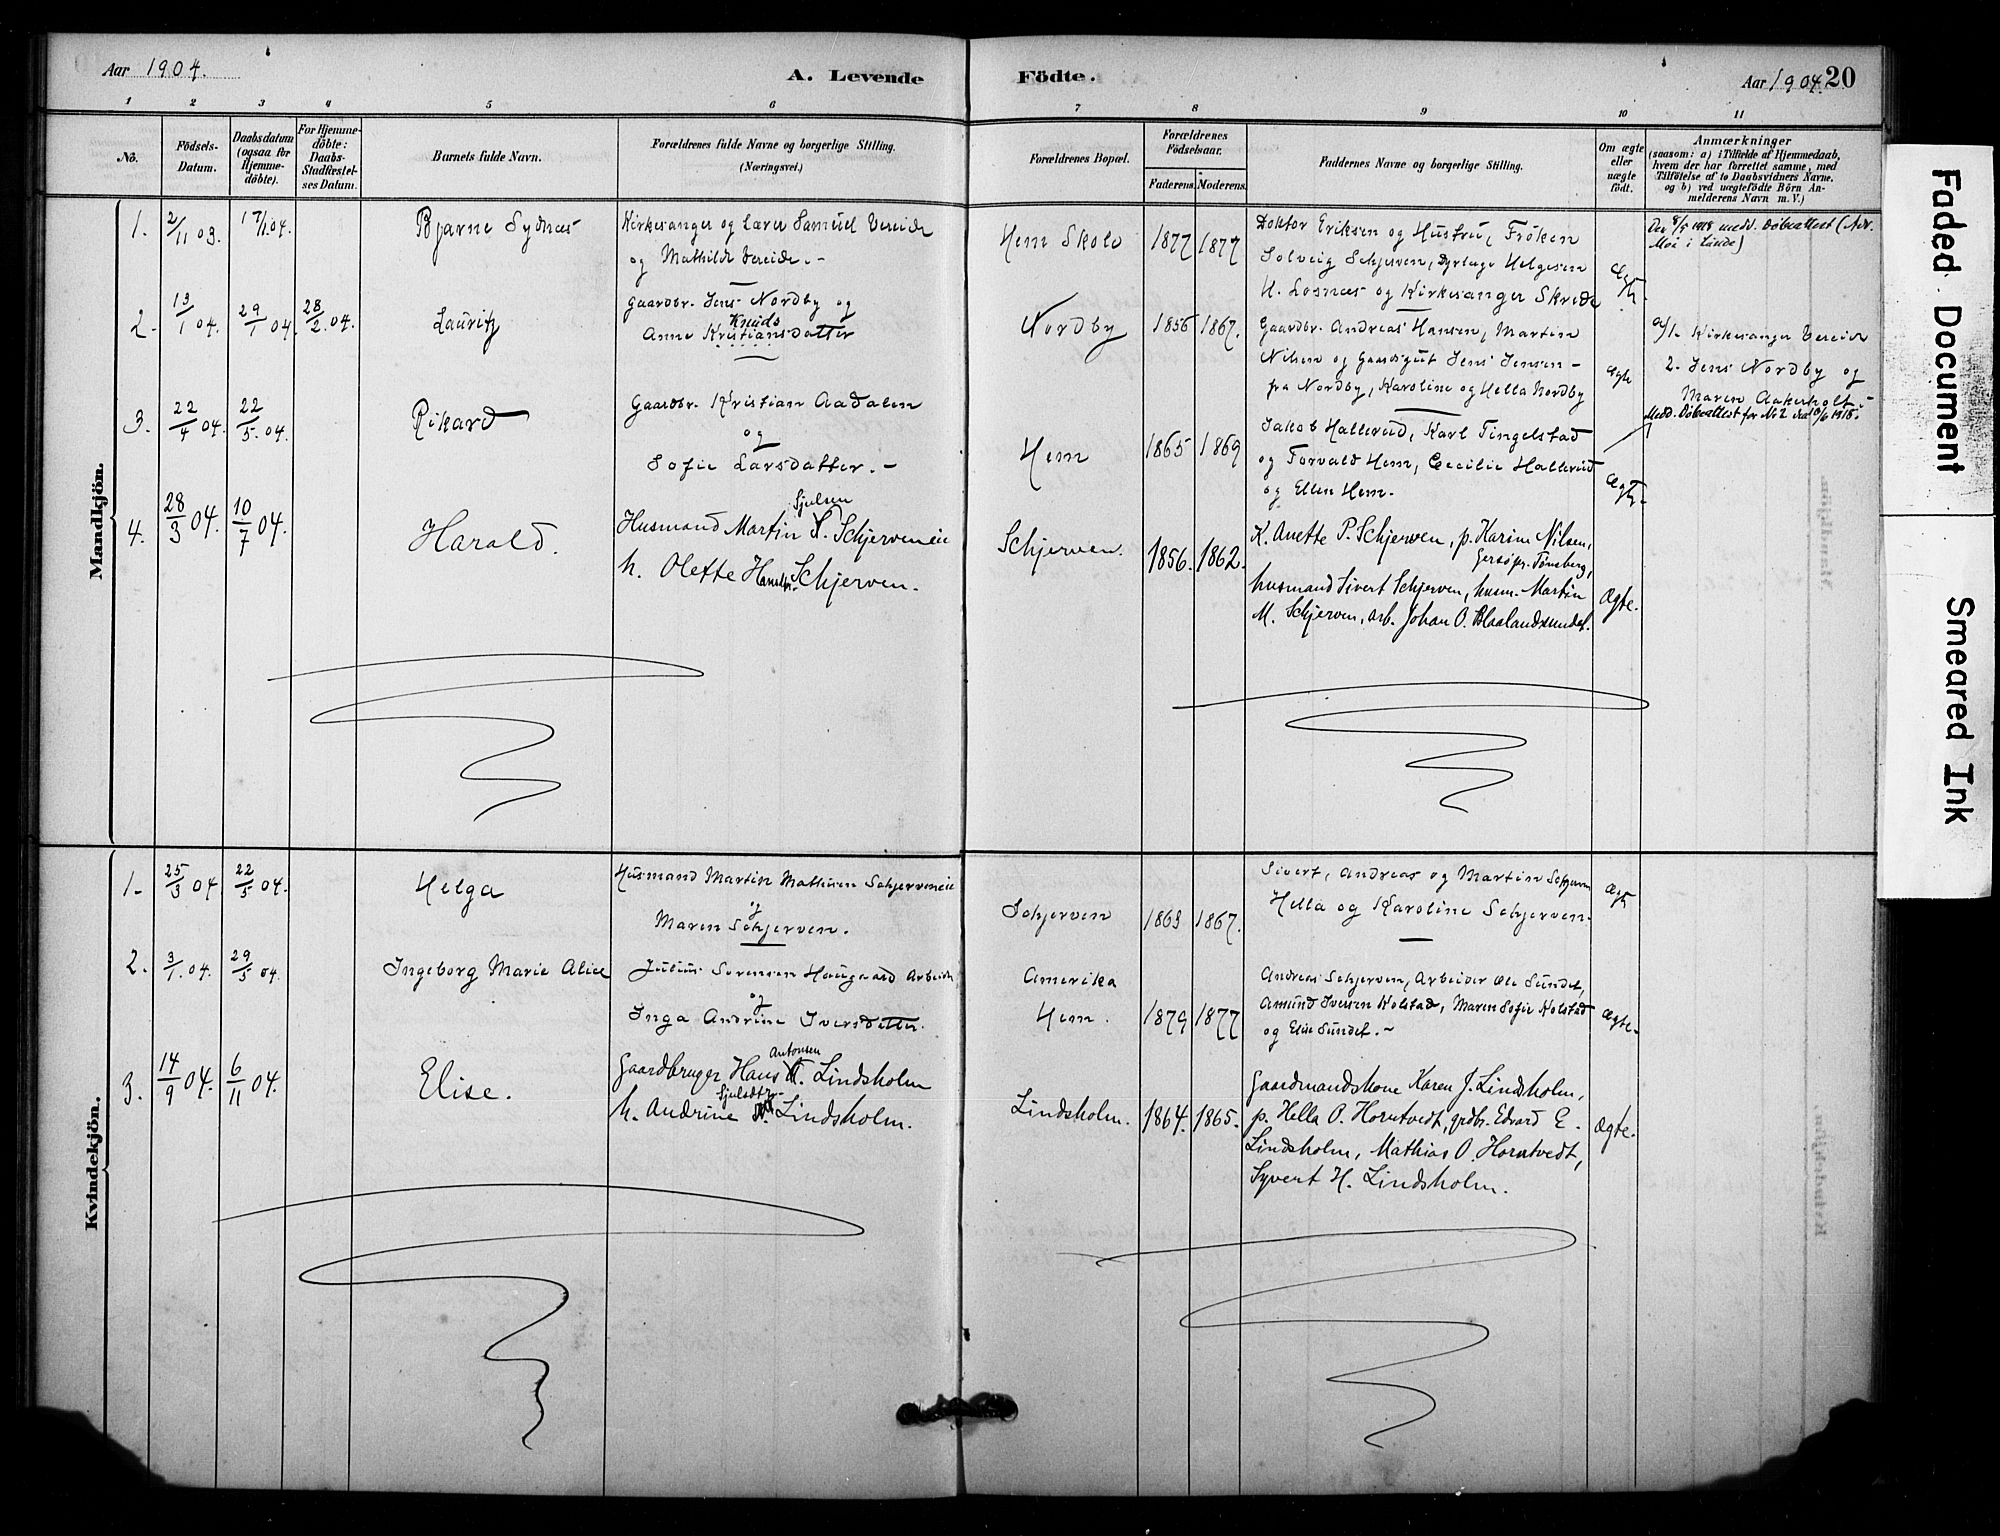 Aar 1904.
A. Levende
Födte.
Aar 1904. 20
1 2 3 4 5 6 7 8 9 10 11
No.
Födsels-
Datum.
Daabsdatum
(ogsaa for
Hjemme-
döbte).
For Hjemme-
döbte:
Daabs-
Stadfæstel-
ses Datum.
Barnets fulde Navn.
Forældrenes fulde Navne og borgerlige Stilling.
(Næringsvei.)
Forældrenes Bopæl.
Forældrenes
Födselsaar.
Faderens. Moderens.
Faddernes Navne og borgerlige Stilling.
Om ægte
eller
uægte
födt.
Anmærkninger
(saasom: a) i Tilfælde af Hjemmedaab,
hvem der har forrettet samme, med
Tilföielse af to Daabsvidners Navne.
og b) ved uægtefödte Börn An-
melderens Navn m. V.)
Mandkjön.
1. 2/11 03. 17/1 04. Bjarne Sydnes
Kirkesanger og Lærer Samuel Vereide
og Mathilde Vereide. -
Hem Skole 1877 1877
Doktor Eriksen og Hustru, Fröken
Solveig Schjerven, Dyrlæge Helgesen
H. Losnæs og Kirkesanger Skrede
Ægte.
Den 8/5 1918 medd. Döbeattest
2. 13/1 04. 29/1 04. 28/2 04. Lauritz
Gaardbr. Jens Nordby og
Knuds
Anne Kristiansdatter
Nordby 1856 1867.
Gaardbr. Andreas Hansen, Martin
Nilsen og Gaardsgut Jens Jensen -
fra Nordby, Karoline og Hella Nordby
Ægte
a/1. Kirkesanger Vereide
2. Jens Nordby og
Maren Aakerholt -
Medd. Döbeattest for No 2
3. 22/4 04. 22/5. 04. Rikard
Gaardbr. Kristian Aadalen
og
Sofie Larsdatter. -
Hem 1865 1869
Jakob Hallerud, Karl Tingelstad
og Torvald Hem, Cecilie Hallerud
og Ellen Hem.
Ægte.
4. 28/3 04. 10/7 04. Harald.
Sjulsen
Husmand Martin S. Schjerveneie
h. Olette Hansdtr. Schjerven.
Schjerven. 1856. 1862.
K. Anette P. Schjerven, p. Karine Nilsen,
Tönsberg,
husmand Sivert Schjerven, husm. Martin
M. Schjerven, arb. Johan O. Blaalandsundet.
Ægte.
Kvindekjön.
1. 25/3 04 22/5 04. Helga
Husmand Martin Mathisen Schjerveneie
og
Maren Schjerven.
Schjerven 1863 1867.
Sivert, Andreas og Martin Schjerven
Hella og Karoline Schjerven.
Ægte
2. 3/1. 04. 29/5 04. Ingeborg Marie Alice
Julius Sörensen Haugaard Arbeider
og
Inga Andrine Iversdatter.
Amerika
Hem. 1879 1877
Andreas Schjerven, Arbeider Ole Sundet,
Amund Iversen Kolstad, Maren Sofie Kolstad
og Elise Sundet. -
Ægte.
3. 14/9 04. 6/11 04. Elise.
Antonsen
Gaardbruger Hans A. Lindsholm
Sjulsdtr.
h. Andrine Lindsholm.
Lindsholm. 1864. 1865.
Gaardmandskone Karen J. Lindsholm,
p. Hella O. Horntvedt, grdbr. Edvard E.
Lindsholm, Mathias O. Horntvedt,
Syvert H. Lindsholm.
Ægte.
Faded Document
Smeared Ink